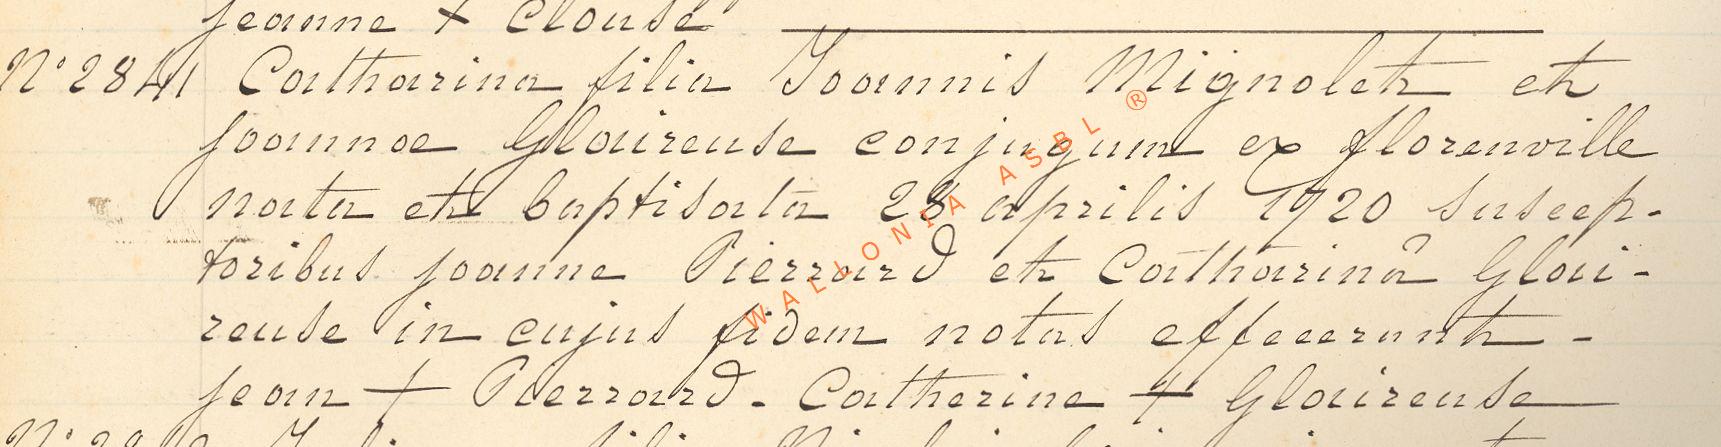 jeanne + Clouse
N° 2841 Catharina filia Joannis Mignoleh eh
joannoe Glaireuse conjugum ex florenville
nata eh baptisata 28 aprilis 1720 suscep-
toribus joanne Pierrard eh Catharinâ Glai-
reuse in cujus fidem notas effecerunh -
jean + Pierrard - Catherine + Glaireuse
WALLONIA ASBL ®